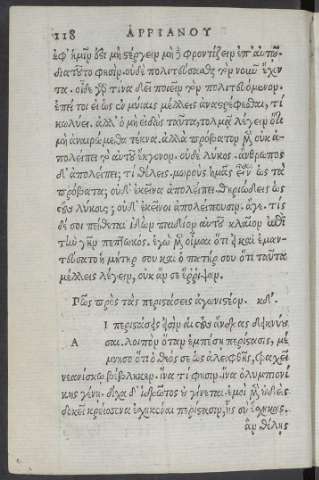 118 ΑΡΡΙΑΝΟΥ
ἐφ' ἡμῖν ὅτι μὴ στέργειν μηδὲ φροντίζειν ἐπ' αὐτῷ.
διὰ τοῦτό φησιν. οὐδὲ πολιτεύσεσθαι τὸν νοῦν ἔχοντα.
οἶδε γὰρ τίνα δεῖ ποιεῖν τὸν πολιτευόμενον.
ἐπεί τοι εἰ ὡς ἐν μυίαις μέλλεις ἀναστρέφεσθαι, τί
κωλύει. ἀλλ' ὁ μὴ εἰδὼς ταῦτα, τολμᾷ λέγειν ὅτι
μὴ ἀναιρώμεθα τέκνα. ἀλλὰ πρόβατον μὲν οὐκ ἀπολείπει
τὸ αὑτοῦ ἔκγονον. οὐδὲ λύκος. ἄνθρωπος
δ' ἀπολείπει; τί θέλεις. μωροὺς ἡμᾶς εἶναι ὡς τὰ
πρόβατα; οὐδ' ἐκεῖνα ἀπολείπει. θηριώδεις ὡς
τοὺς λύκους; οὐδ' ἐκεῖνοι ἀπολείπουσιν. ἄγε. τίς
δέ σοι πείθεται ἰδὼν παιδίον αὐτοῦ κλαῖον ἐπὶ
τὴν γῆν πεπτωκός. ἐγὼ μὲν οἶμαι ὅτι εἰ καὶ ἐμαντεύσατο
ἡ μήτηρ σου καὶ ὁ πατήρ σου ὅτι ταῦτα
μέλλεις λέγειν, οὐκ ἄν σε ἔρριψαν.
Πῶς πρὸς τὰς περιστάσεις ἀγωνιστέον. κδ'.
Ι περιστάσεις εἰσὶν αἱ τοὺς ἄνδρας δεικνύουσαι.
Α λοιπὸν ὅταν ἐμπέσῃ περίστασις, μέμνησο
ὅτι ὁ θεός σε ὡς ἀλείπτης, τραχεῖ
νεανίσκῳ βέβληκεν. ἵνα τί φησιν. ἵνα ὀλυμπιονίκης
γένῃ. δίχα δ' ἱδρῶτος οὐ γίνεται. ἐμοὶ μὲν οὐδεὶς
δοκεῖ κρείσσονα ἐσχηκέναι περίστασιν, ἧς σὺ ἔσχηκας.
ἂν θέλῃς